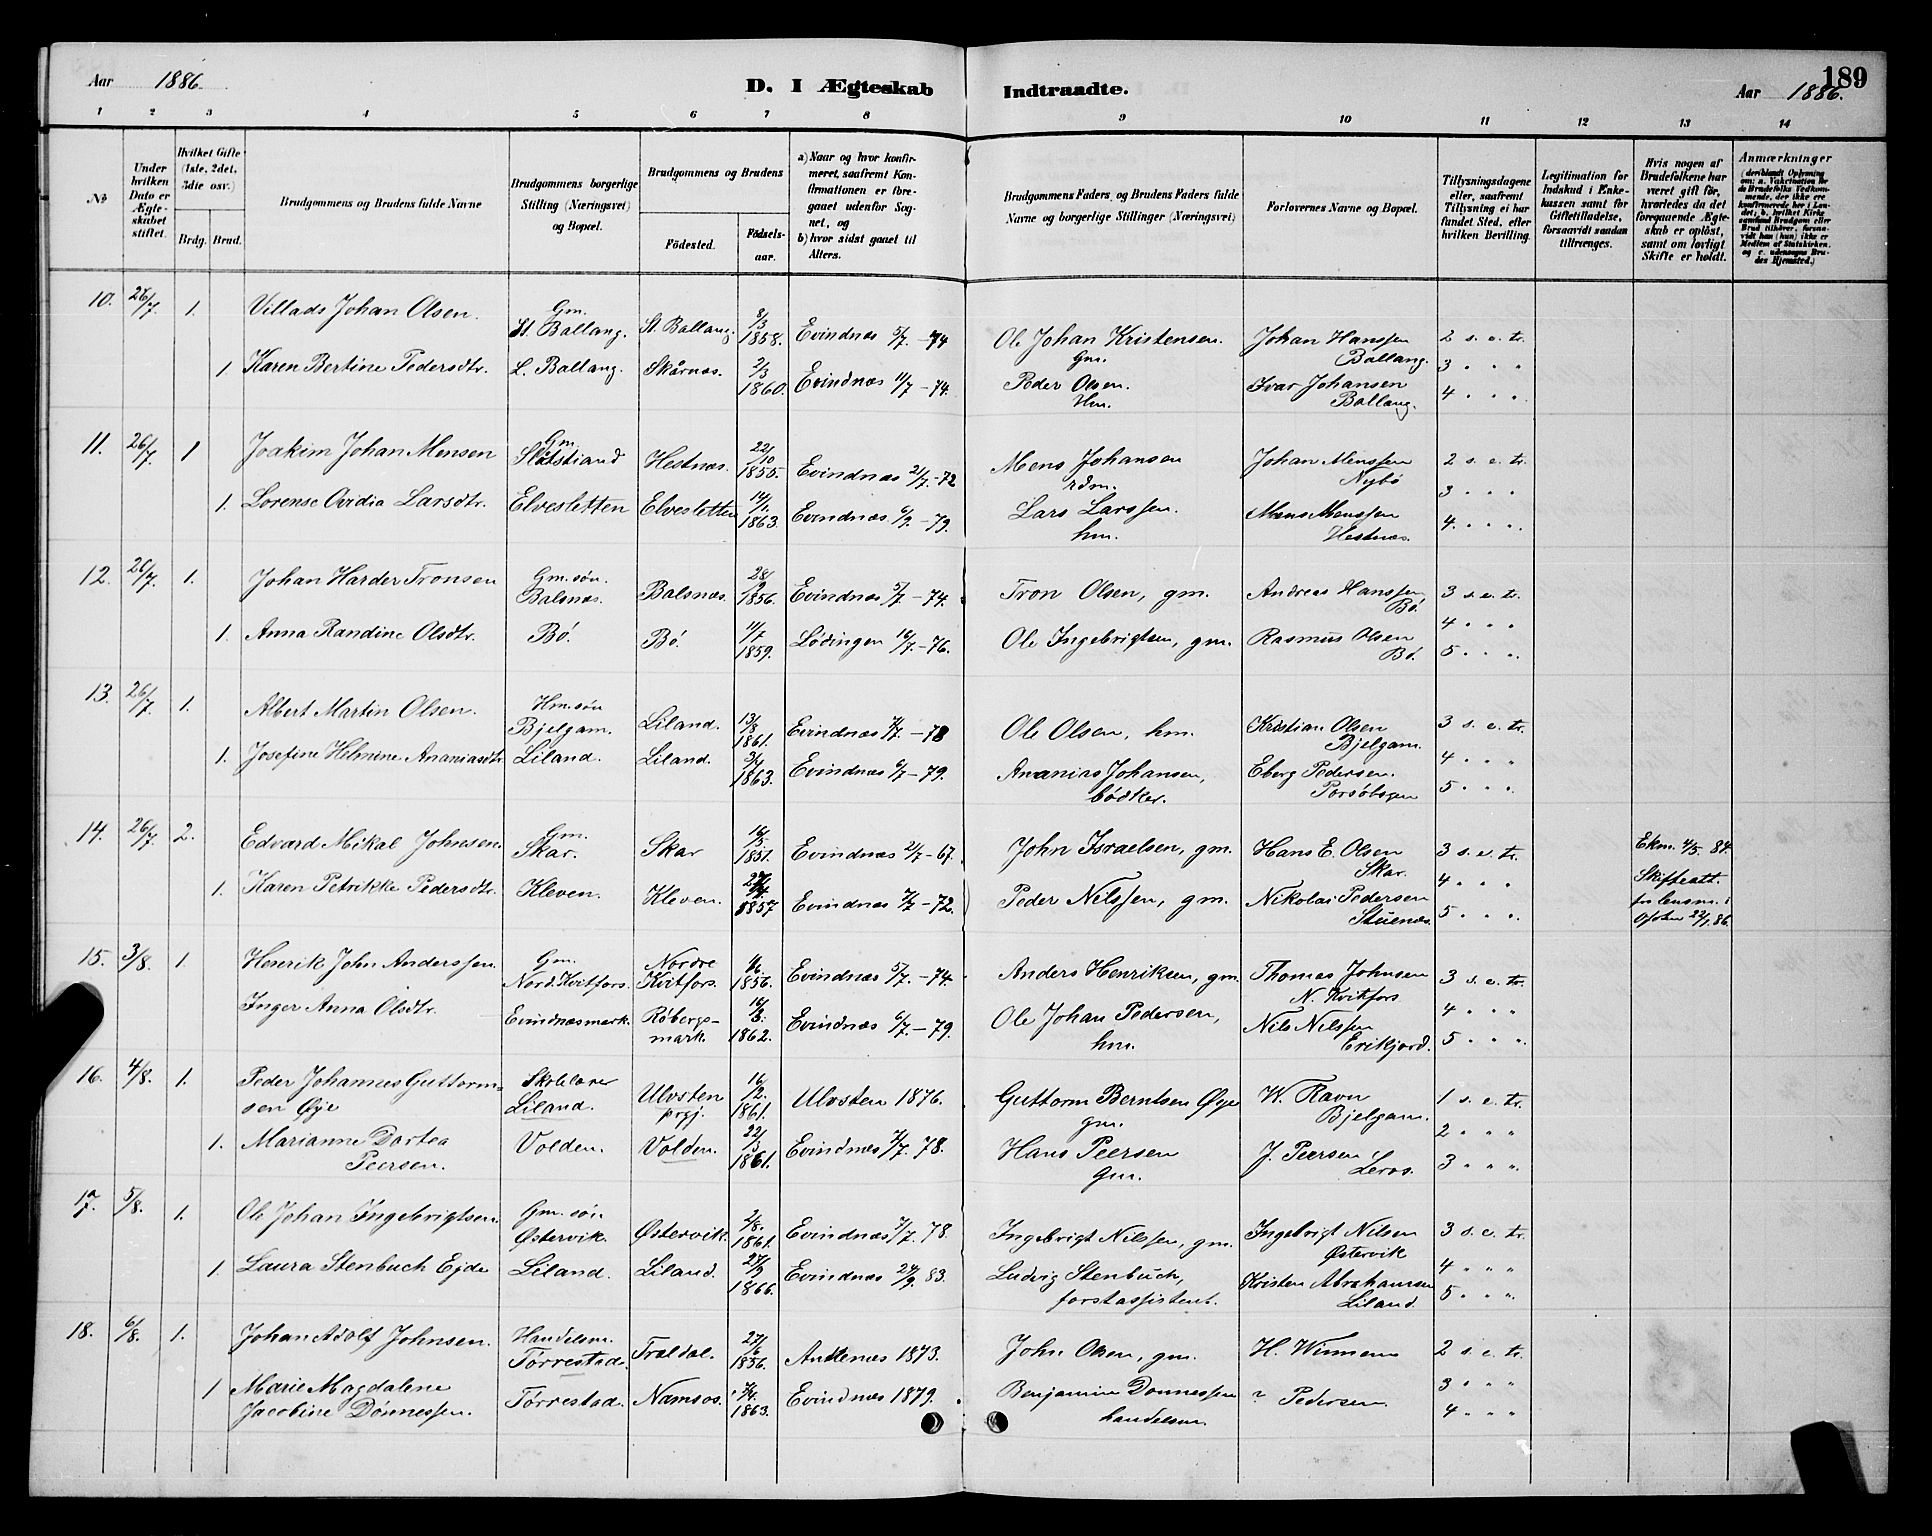 Aar 1886.
D. I Ægteskab Indtraadte.
189
Aar 1886.
1 2 3 4 5 6 7 8 9 10 11 12 13 14
№
Under hvilken Dato er Ægteskabet stiftet.
Hvilket Gifte (1ste, 2det, 3dte osv.)
Brdg. Brud.
Brudgommens og Brudens fulde Navne
Brudgommens borgerlige Stilling (Næringsvei) og Bopæl.
Brudgommens og Brudens
Fødested.
Fødselsaar.
a) Naar og hvor konfirmeret, saafremt Konfirmationen er foregaaet udenfor Sognet, og
b) hvor sidst gaaet til Alters.
Brudgommens Faders og Brudens Faders fulde Navne og borgerlige Stillinger (Næringsvei)
Forlovernes Navne og Bopæl.
Tillysningsdagene eller, saafremt Tillysning ei har fundet Sted, efter hvilken Bevilling.
Legitimation for Indskud i Enkekassen samt for Giftetilladelse, forsaavidt saadan tiltrænges.
Hvis nogen af Brudefolkene har været gift før, hvorledes da det foregaaende Ægteskab er opløst, samt om lovligt Skifte er holdt.
Anmærkninger (deriblandt Oplysning om: a. Vakcination for de Brudefolks Vedkommende, der ikke ere konfirmerede her i Landet; b. hvilket Kirkesamfund Brudgom eller Brud tilhører, forsaavidt han (hun) ikke er Medlem af Statskirken, og c. udensogns Brudes Hjemsted.)
10. 26/7. 1. Villads Johan Olsen. Gm. St. Ballang. St. Ballang. 8/3 1858. Evindnæs 5/7. -74 Ole Johan Kristensen. Gm. Johan Hanssen Ballang. 2 s. e. tr.
1 Karen Bertine Pedersdtr. L. Ballang. Skårnæs. 2/3 1860. Evindnæs 11/7 - 74. Peder Olsen. Hm. Ivar Johansen Ballang. 3 " " 4 " "
11. 26/7. 1 Joakim Johan Mensen Gm. Slåtstrand Hestnæs. 22/10 1855. Evindnæs 21/7. -72 Mens Johansen rdm. Johan Menssen Nybø 2 s. e. tr.
1. Lorense Ovidia Larsdtr. Elvesletten Elvesletten 14/1. 1863. Evindnæs 6/7. - 79. Lars Larssen. hm. Mens Menssen Hestnæs. 3 " " 4. " "
12. 26/7. 1. Johan Harder Tronsen Gm. søn. Balsnæs. Balsnæs. 28/9 1856. Evindnæs 5/7 - 74. Tron Olsen, gm. Andreas Hanssen Bø. 3 s. e. tr.
1. Anna Randine Olsdtr. Bø. Bø. 11/7 1859. Lødingen 16/7. - 76. Ole Ingebrigtsen, gm. Rasmus Olsen Bø. 4 " " 5 " "
13. 26/7. 1. Albert Martin Olsen. Hm. søn Bjelgam. Liland. 13/8 1861. Evindnæs 7/7. - 78 Ole Olsen, hm. Kristian Olsen Bjelgam. 3 s. e. tr.
1. Josefine Helmine Ananiasdtr. Liland. Liland. 3/4 1863. Evindnæs 6/7 - 79. Ananias Johansen, bødker. Eberg Pedersen. 4 " " 5 " "
14. 26/7. 2. Edvard Mikal Johnsen. Gm. Skar. Skar 16/5 1851. Evindnæs 21/7 - 67. John Israelsen, gm. Hans E. Olsen Skar. 3 s. e. tr. Ekm. 4/5. 84.
1. Karen Petrikke Pedersdtr. Kleven. Kleven. 1857 Evindnæs 7/7 - 72. Peder Nilssen, gm. Nikolai Pedersen Stuenæs. 4 " " 5 " " Skifteatt. fra lensm. i Ofoten 22/1. 86.
15. 3/8. 1. Henrik John Anderssen. Gm. Nord. Kvitfors. Nordre Kvitfors. 1856. Evindnæs 5/7. - 74. Anders Henriksen, gm. Thomas Johnsen N. Kvitfors. 3 s. e. tr.
Inger Anna Olsdtr. Evindnæsmark. Røbergsmark. 16/3. 1862. Evindnæs 6/7. - 79. Ole Johan Pedersen, hm. Nils Nilssen Erikjord. 4 " " 5 " "
16. 4/8. 1. Peder Johannes Guttormsen Øye Skolelærer Liland. Ulvsten prgj. 16/12. 1861. Ulvsten 1876. Guttorm Berntsen Øye gm. W. Ravn Bjelgam. 1 s. e. tr.
1. Marianne Dortea Peersen. Volden. Volden. 22/3 1861. Evindnæs 7/7. 78. Hans Peersen Gm. J. Peersen Leros. 2 " " 3 " "
17. 5/8. 1. Ole Johan Ingebrigtsen. Gm. søn Østervik. Østervik. 2/8. 1861. Evindnæs 7/7. 78. Ingebrigt Nilssen, gm. Ingebrigt Nilsen Østervik 3 s. e. tr.
1. Laura Stenbuch Ejde Liland. Liland. 27/9 1866. Evindnæs 24/9. 83. Ludvig Stenbuch, forstassistent. Kristen Abrahamsen Liland. 4 " " 5 " "
18. 6/8. 1. Johan Adolf Johnsen. Handelsm. Tørrestad. Traldal. 27/6 1856. Ankenæs 1873. John Olsen, gm. H. 2 s. e. tr.
1 Marie Magdalene Jacobine Dønnessen. Tørrestad. Namsos. 7/4. 1863. Evindnæs 1879. Benjamin Dønnessen handelsm. ? Pedersen. 3 " " 4 " "